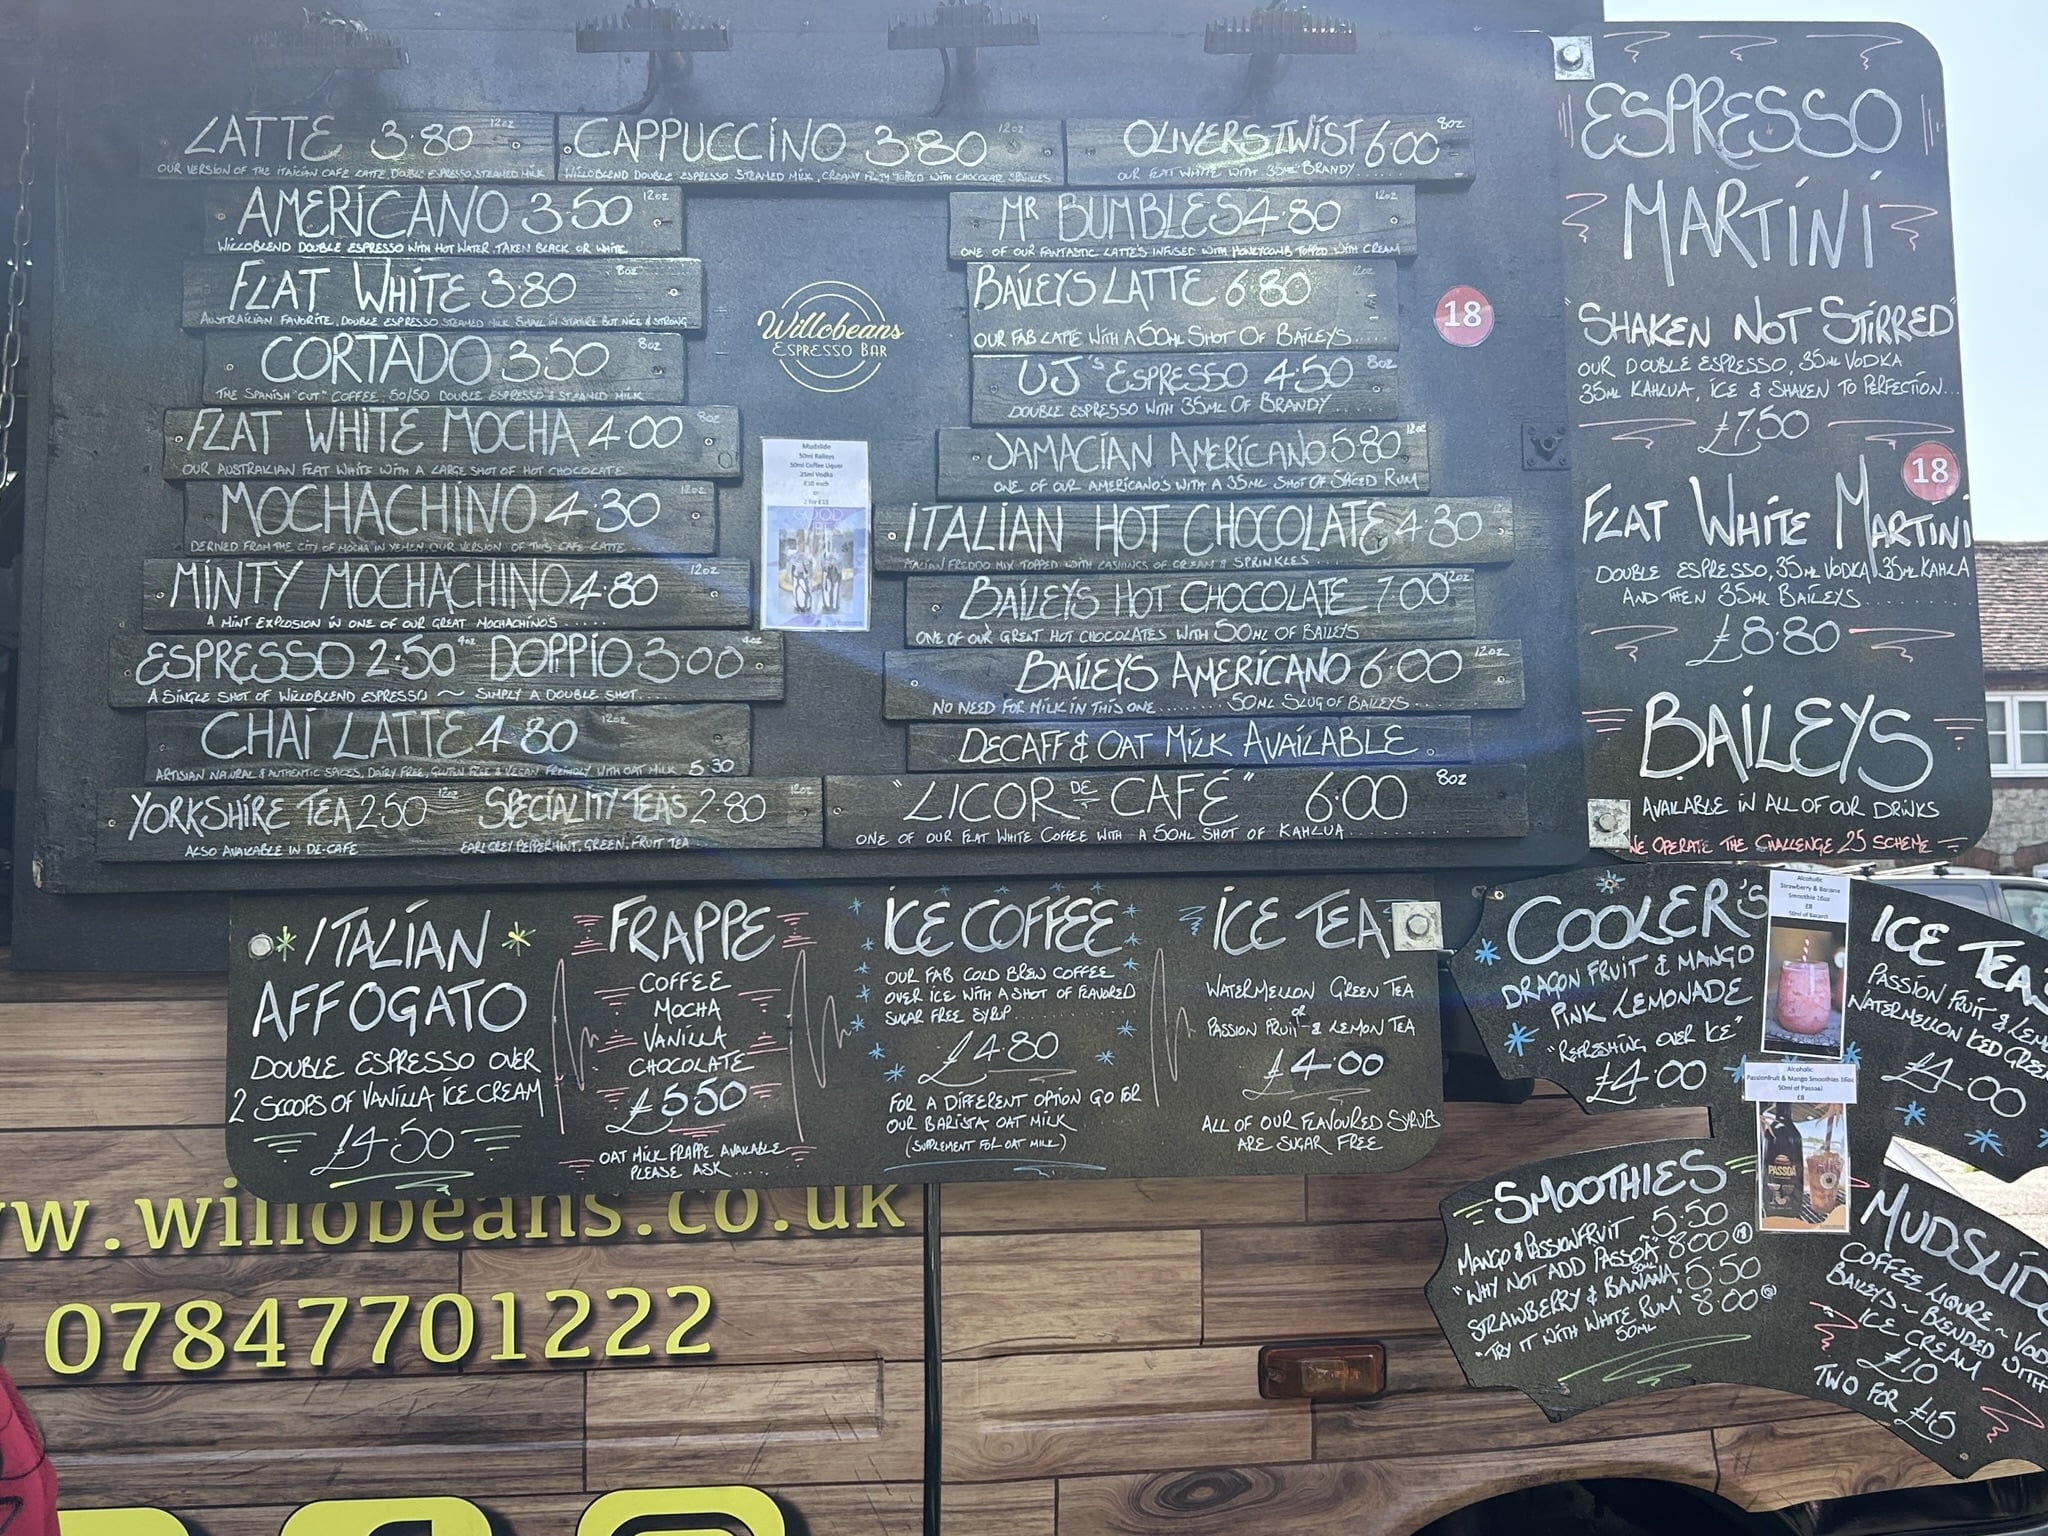 LATTE 3.80 12oz
OUR VERSION OF THE ITALIAN CAFE LATTE, DOUBLE ESPRESSO, STEAMED MILK
AMERICANO 3.50 12oz
WILLOBLEND DOUBLE ESPRESSO WITH HOT WATER, TAKEN BLACK OR WHITE
FLAT WHITE 3.80 8oz
DOUBLE ESPRESSO STEAMED MILK SMALL IN STATURE BUT NICE & STRONG
CORTADO 3.50 8oz
THE SPANISH "CUT" COFFEE, 50/50 DOUBLE ESPRESSO & STEAMED MILK
FLAT WHITE MOCHA 4.00 8oz
OUR AUSTRALIAN FLAT WHITE WITH A LARGE SHOT OF HOT CHOCOLATE
MOCHACHINO 4.30 12oz
FROM THE CITY OF MOCHA IN YEMEN OUR VERSION OF THIS CAFE LATTE
MINTY MOCHACHINO 4.80 12oz
A MINT EXPLOSION IN ONE OF OUR GREAT MOCHACHINOS......
ESPRESSO 2.50 DOPPIO 3.00 4oz
A SINGLE SHOT OF WILLOBLEND ESPRESSO ~ SIMPLY A DOUBLE SHOT....
CHAI LATTE 4.80 12oz
ARTISIAN NATURAL & AUTHENTIC SPICES, DAIRY FREE, GLUTEN FREE & VEGAN FRIENDLY WITH OAT MILK 5.30
YORKSHIRE TEA 2.50 12oz SPECIALITY TEA'S 2.80 12oz
ALSO AVAILABLE IN DE-CAFE EARL GREY, PEPPERMINT, GREEN, FRUIT TEA
CAPPUCCINO 3.80 12oz
WILLOBLEND DOUBLE ESPRESSO STEAMED MILK, CREAMY FROTH TOPPED WITH CHOCOLATE
Willobeans
ESPRESSO BAR
Mudslide
50ml Baileys
50ml Coffee Liquer
25ml Vodka
£10 each
or
2 for £15
GOOD
OLIVERS TWIST 6.00 8oz
OUR FLAT WHITE WITH 35ml BRANDY.....
MR BUMBLES 4.80 12oz
ONE OF OUR FANTASTIC LATTE'S INFUSED WITH HONEYCOMB TOPPED WITH CREAM
BAILEYS LATTE 6.80 12oz
OUR FAB LATTE WITH A 50ML SHOT OF BAILEYS....
18
UJ'S ESPRESSO 4.50 8oz
DOUBLE ESPRESSO WITH 35ML OF BRANDY......
JAMACIAN AMERICANO 5.80 12oz
ONE OF OUR AMERICANO'S WITH A 35ML SHOT OF SPICED RUM
ITALIAN HOT CHOCOLATE 4.30 12oz
ITALIAN FREDDO MIX TOPPED WITH LASHINGS OF CREAM & SPRINKLES
BAILEYS HOT CHOCOLATE 7.00 12oz
ONE OF OUR GREAT HOT CHOCOLATES WITH 50ML OF BAILEYS
BAILEYS AMERICANO 6.00 12oz
NO NEED FOR MILK IN THIS ONE........50ML SLUG OF BAILEYS...
DECAFF & OAT MILK AVAILABLE
"LICOR DE CAFÉ" 6.00 8oz
ONE OF OUR FLAT WHITE COFFEE WITH A 50ML SHOT OF KAHLUA
ESPRESSO
MARTINI
"SHAKEN NOT STIRRED"
OUR DOUBLE ESPRESSO, 35ML VODKA
35ML KAHLUA, ICE & SHAKEN TO PERFECTION...
£7.50
18
FLAT WHITE MARTINI
DOUBLE ESPRESSO, 35ML VODKA, 35ML KAHLA
AND THEN 35ML BAILEYS..........
£8.80
BAILEYS
AVAILABLE IN ALL OF OUR DRINKS
WE OPERATE THE CHALLENGE 25 SCHEME
ITALIAN
AFFOGATO
DOUBLE ESPRESSO OVER
2 SCOOPS OF VANILLA ICE CREAM
£4.50
FRAPPE
COFFEE
MOCHA
VANILLA
CHOCOLATE
£5.50
OAT MILK FRAPPE AVAILABLE
PLEASE ASK.....
ICE COFFEE
OUR FAB COLD BREW COFFEE
OVER ICE WITH A SHOT OF FLAVORED
SUGAR FREE SYRUP.......
£4.80
FOR A DIFFERENT OPTION GO FOR
OUR BARISTA OAT MILK
(SUPPLEMENT FOR OAT MILK)
ICE TEA
WATERMELLON GREEN TEA
OR
PASSION FRUIT & LEMON TEA
£4.00
ALL OF OUR FLAVOURED SYRUPS
ARE SUGAR FREE
COOLER'S
DRAGON FRUIT & MANGO
PINK LEMONADE
"REFRESHING OVER ICE"
£4.00
Alcoholic
Strawberry & Banana
Smoothie 16oz
£8
50ml of Bacardi
ICE TEAS
PASSION FRUIT &
WATERMELLON ICED GREEN
£4.00
Alcoholic
Passionfruit & Mango Smoothies 16oz
50ml of Passoa
£8
PASSOÃ
SMOOTHIES
MANGO & PASSIONFRUIT 5.50
"WHY NOT ADD PASSOA 8.00 18
50ML
STRAWBERRY & BANANA 5.50
"TRY IT WITH WHITE RUM" 8.00
50ML
COFFEE LIQURE ~
BAILEYS ~ BLENDED WITH
ICE CREAM
£10
TWO FOR £15
w.willobeans.co.uk
07847701222